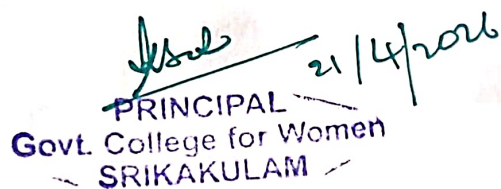 21/4/2026
PRINCIPAL
Govt. College for Women
SRIKAKULAM